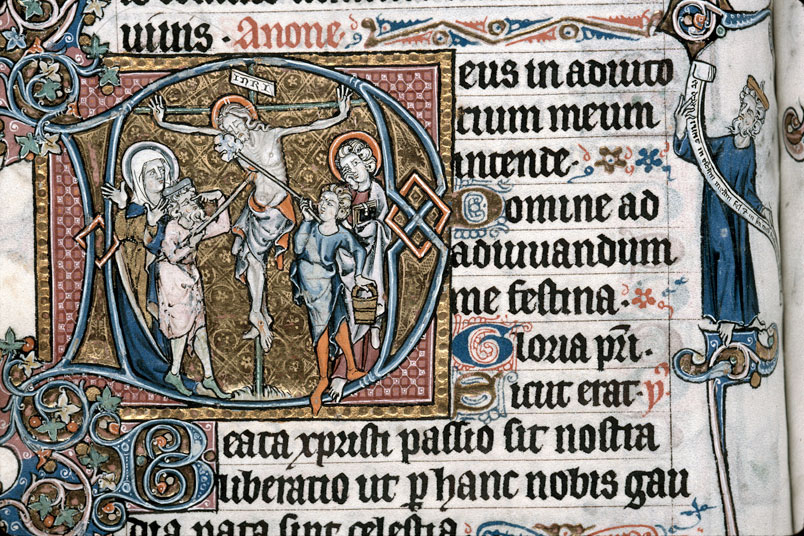 uinis · Anone ·
INRI
eus in adiuto
rium meum
intende ·
Domine ad
adiuuandum
me festina ·
Gloria pr̄i ·
Sicut erat · ꝟ
Beata xpristi passio sit nostra
liberatio ut ꝑ hanc nobis gau
dia parata sint celestia